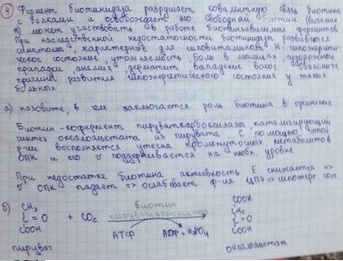 ④ Фермент биотинидаза разрушает ковалентную связь биотина
с белками и освобождает его. Свободный биотин (витамин
H) может участвовать в работе биотинзависимых ферментов.
При наследственной недостаточности биотинидазы развиваются
симптомы, характерные для гиповитаминоза H: гипоэнергети-
ческое состояние, утомляемость, боль в мышцах, судорожные
припадки, дерматит, выпадение волос.
причина развития гипоэнергетического состояния у таких
больных
а) назовите, в чем заключается роль биотина в организме
Биотин - кофермент пируваткарбоксилазы, катализирующий
синтез оксалоацетата из пирувата. С помощью этой
р-ии восполняется утечка промежуточных метаболитов
ОПК и его υ поддерживается на норм. уровне
При недостатке биотина активность Е снижается =>
υ ОПК падает => ослабевает ф-ия ЦПЭ => гипоэнерг. сост.
б)
CH₃ биотин COOH
C=O + CO₂ пируваткарбоксилаза CH₂
COOH C=O
АТФ АДФ + H₃PO₄ COOH
пируват оксалоацетат